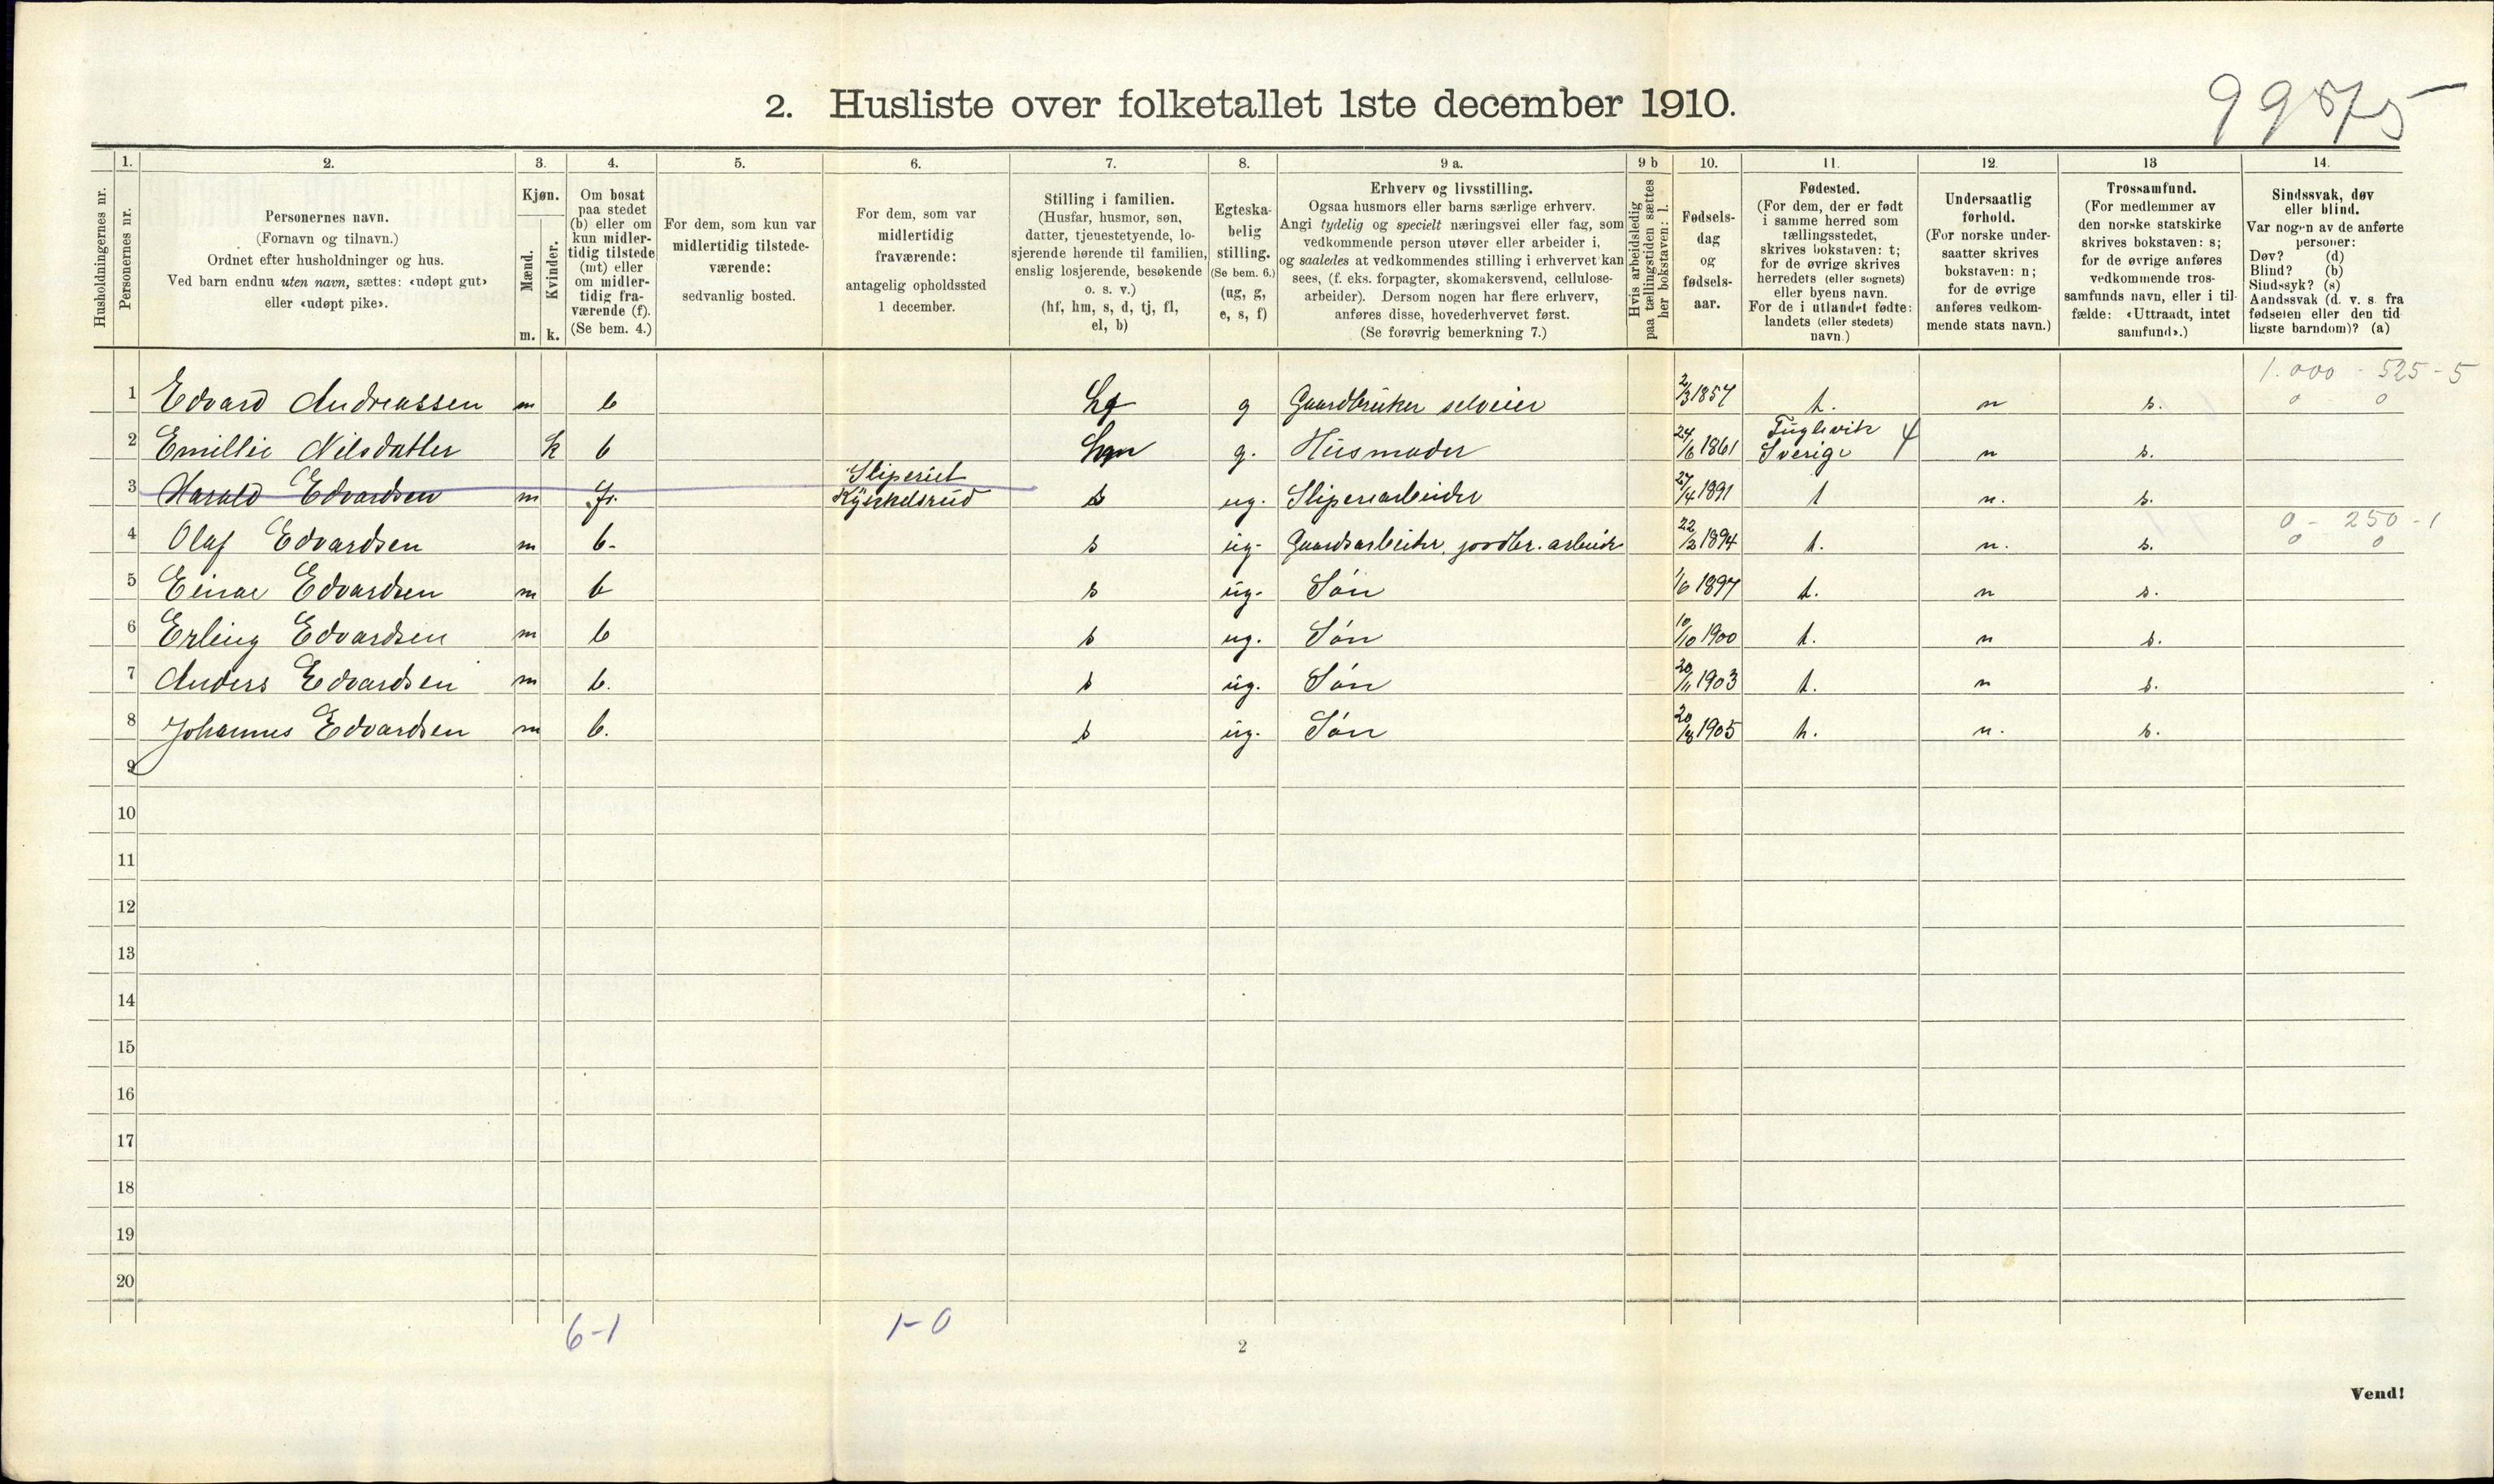 99875
2. Husliste over folketallet 1ste december 1910.
Husholdningernes nr.
1. Personernes nr.
2. Personernes navn.
(Fornavn og tilnavn.)
Ordnet efter husholdninger og hus.
Ved barn endnu uten navn, sættes: «udøpt gut»
eller «udøpt pike».
3. Kjøn.
Mænd. m.
Kvinder. k.
4. Om bosat
paa stedet
(b) eller om
kun midler-
tidig tilstede
(mt) eller
om midler-
tidig fra-
værende (f).
(Se bem. 4.)
5. For dem, som kun var
midlertidig tilstede-
værende:
sedvanlig bosted.
6. For dem, som var
midlertidig
fraværende:
antagelig opholdssted
1 december.
7. Stilling i familien.
(Husfar, husmor, søn,
datter, tjenestetyende, lo-
sjerende hørende til familien,
enslig losjerende, besøkende
o. s. v.)
(hf, hm, s, d, tj, fl,
el, b)
8. Egteska-
belig
stilling.
(Se bem. 6.)
(ug, g,
e, s, f)
9 a. Erhverv og livsstilling.
Ogsaa husmors eller barns særlige erhverv.
Angi tydelig og specielt næringsvei eller fag, som
vedkommende person utøver eller arbeider i,
og saaledes at vedkommendes stilling i erhvervet kan
sees, (f. eks. forpagter, skomakersvend, cellulose-
arbeider). Dersom nogen har flere erhverv,
anføres disse, hovederhvervet først.
(Se forøvrig bemerkning 7.)
9 b Hvis arbeidsledig
paa tællingstiden sættes
her bokstaven: l.
10. Fødsels-
dag
og
fødsels-
aar.
11. Fødested.
(For dem, der er født
i samme herred som
tællingsstedet,
skrives bokstaven: t;
for de øvrige skrives
herredets (eller sognets)
eller byens navn.
For de i utlandet fødte:
landets (eller stedets)
navn.)
12. Undersaatlig
forhold.
(For norske under-
saatter skrives
bokstaven: n;
for de øvrige
anføres vedkom-
mende stats navn.)
13 Trossamfund.
(For medlemmer av
den norske statskirke
skrives bokstaven: s;
for de øvrige anføres
vedkommende tros-
samfunds navn, eller i til-
fælde: «Uttraadt, intet
samfund».)
14. Sindssvak, døv
eller blind.
Var nogen av de anførte
personer:
Døv? (d)
Blind? (b)
Sindssyk? (s)
Aandssvak (d. v. s. fra
fødselen eller den tid-
ligste barndom)? (a)
1.000 - 525 - 5
1 Edvard Andreassen m b g Gaardbruker selveier 2/3 1857 t. n s. 0 0
2 Emillie Nilsdatter k b g. Husmoder 24/6 1861 Sverige n s.
Sliperiet
3 Harald Edvardsen m fr. Kykkelsrud s ug. Sliperiarbeider 27/4 1891 t n. s.
0 - 250 - 1
4 Olaf Edvardsen m b- s ug- Gaardsarbeider, jordbr. arbeide 22/2 1894 t. n. s. 0 0
5 Einar Edvardsen m b s ug- Søn 1/6 1897 t. n s.
6 Erling Edvardsen m b s ug. Søn 10/10 1900 t. n s.
7 Anders Edvardsen m b. s ug. Søn 20/11 1903 t. n s.
8 Johannes Edvardsen m b. s ug. Søn 20/8 1905 t. n. s.
9
10
11
12
13
14
15
16
17
18
19
20
6-1 1-0
2
Vend!